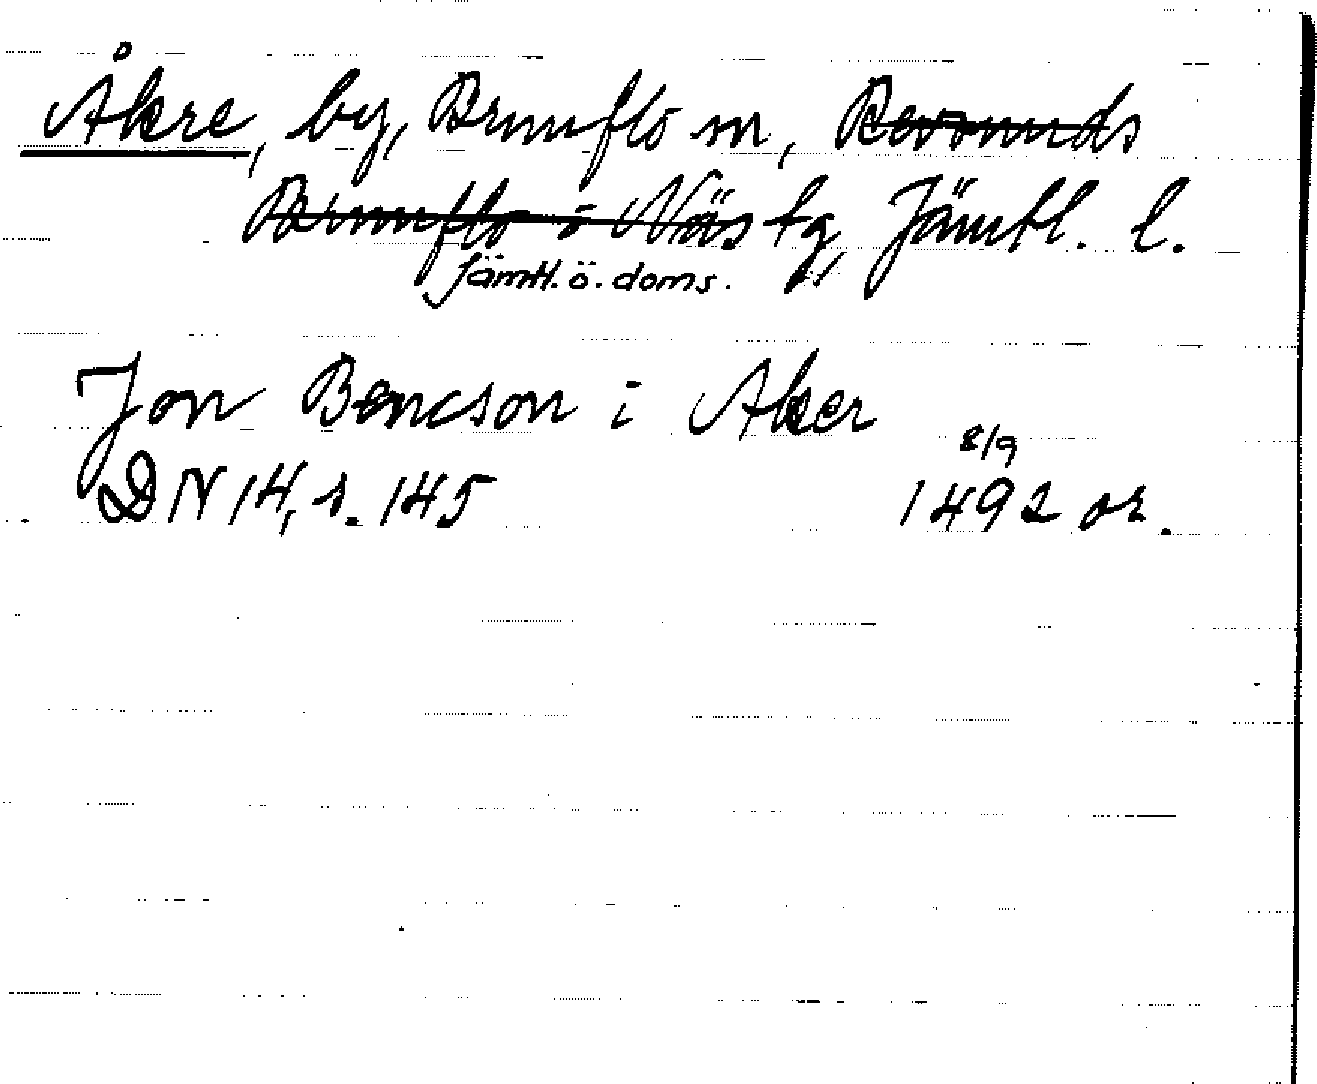 Åkre, by, Brunflo sn, Revsunds
Brunflo o Näs tg, Jämtl. l.
Jämtl. ö. doms.
Jon Bencson i Aker
8/9
DN 14, s. 145 1492 or.